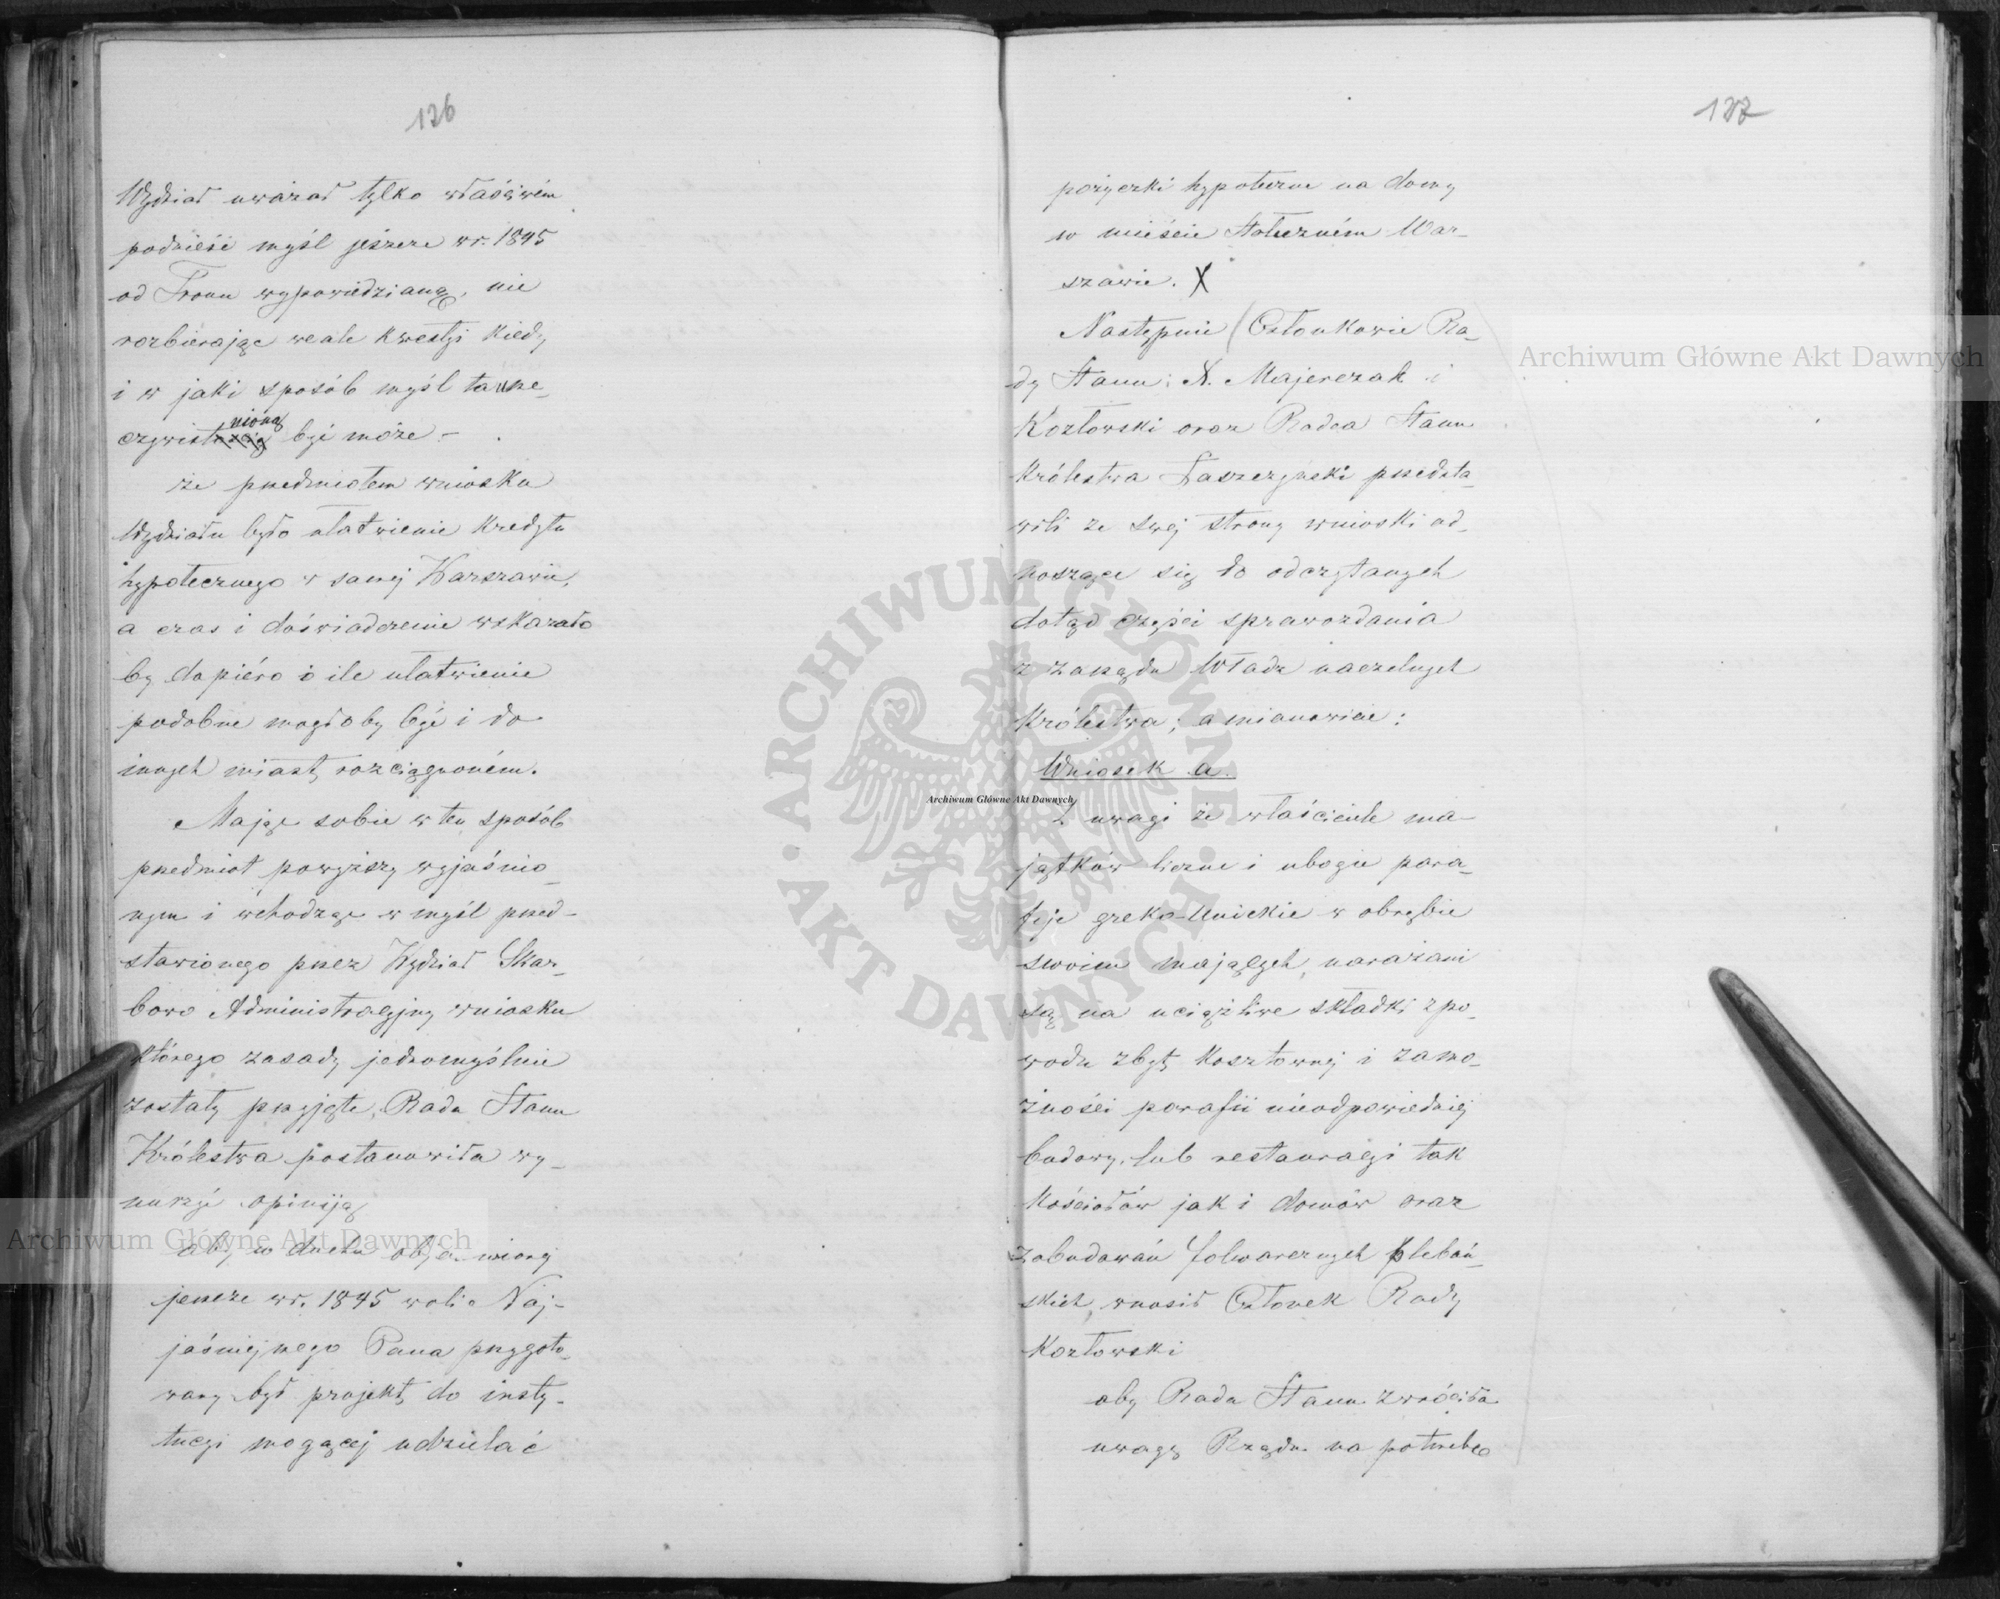 126
Wydział uważał tylko właściwém
podnieść myśl jeszcze w r. 1845
od Tronu wypowiedzianą, nie
rozbierając wcale kwestyi kiedy
i w jaki sposób myśl ta urze-
czywistnioną być może –
że przedmiotem wniosku
Wydziału było ułatwienie kredytu
hypotecznego w samej Warszawie,
a czas i doświadczenie wskazało
by dopiéro o ile ułatwienie
podobne mogłoby być i do
innych miast rozciągnioném.
Mając sobie w ten sposób
przedmiot powyższy wyjaśnio-
nym i wchodząc w myśl przed-
stawionego przez Wydział Skar-
bowo Administracyjny wniosku
którego zasady jednomyślnie
zostały przyjęte, Rada Stanu
Królestwa postanowiła wy-
nurzyć opiniją
aby w duchu objawionej
jeszcze w r. 1845 woli Naj-
jaśniejszego Pana przygoto-
wany był projekt do insty-
tucyi mogącej udzielać
127
pożyczki hypoteczne na domy
w mieście Stołeczném War-
szawie. X
Następnie (Członkowie Ra-
dy Stanu: X. Majerczak i
Kozłowski oraz Radca Stanu
Królestwa Łaszczyński przedsta-
wili ze swej strony wnioski od-
noszące się do odczytanych
dotąd części sprawozdania
z zarządu Władz naczelnych
Królestwa; a mianowicie:
Wniosek a.
Z uwagi że właściciele ma-
jątków liczne i ubogie para-
fije greko-Unickie w obrębie
swoim mających, narażani
są na uciążliwe składki z po-
wodu zbyt kosztownej i zamo-
żności parafii nieodpowiedniej
budowy, lub restauracyi tak
kościołów jak i domów oraz
zabudowań folwarcznych plebań-
skich, wnosił Członek Rady
Kozłowski
aby Rada Stanu zwróciła
uwagę Rządu na potrzebę
Archiwum Główne Akt Dawnych
Archiwum Główne Akt Dawnych
Archiwum Główne Akt Dawnych
ARCHIWUM GŁÓWNE · AKT DAWNYCH ·